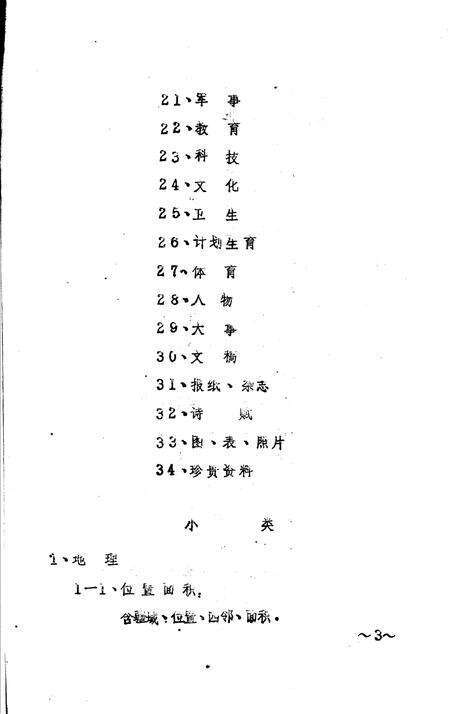 21、军 事
22、教 育
23、科 技
24、文 化
25、卫 生
26、计划生育
27、体 育
28、人 物
29、大 事
30、文 稿
31、报纸、杂志
32、诗 赋
33、图、表、照片
34、珍贵资料
小 类
1、地 理
1—1、位置面积。
含疆域、位置、四邻、面积。
~3~